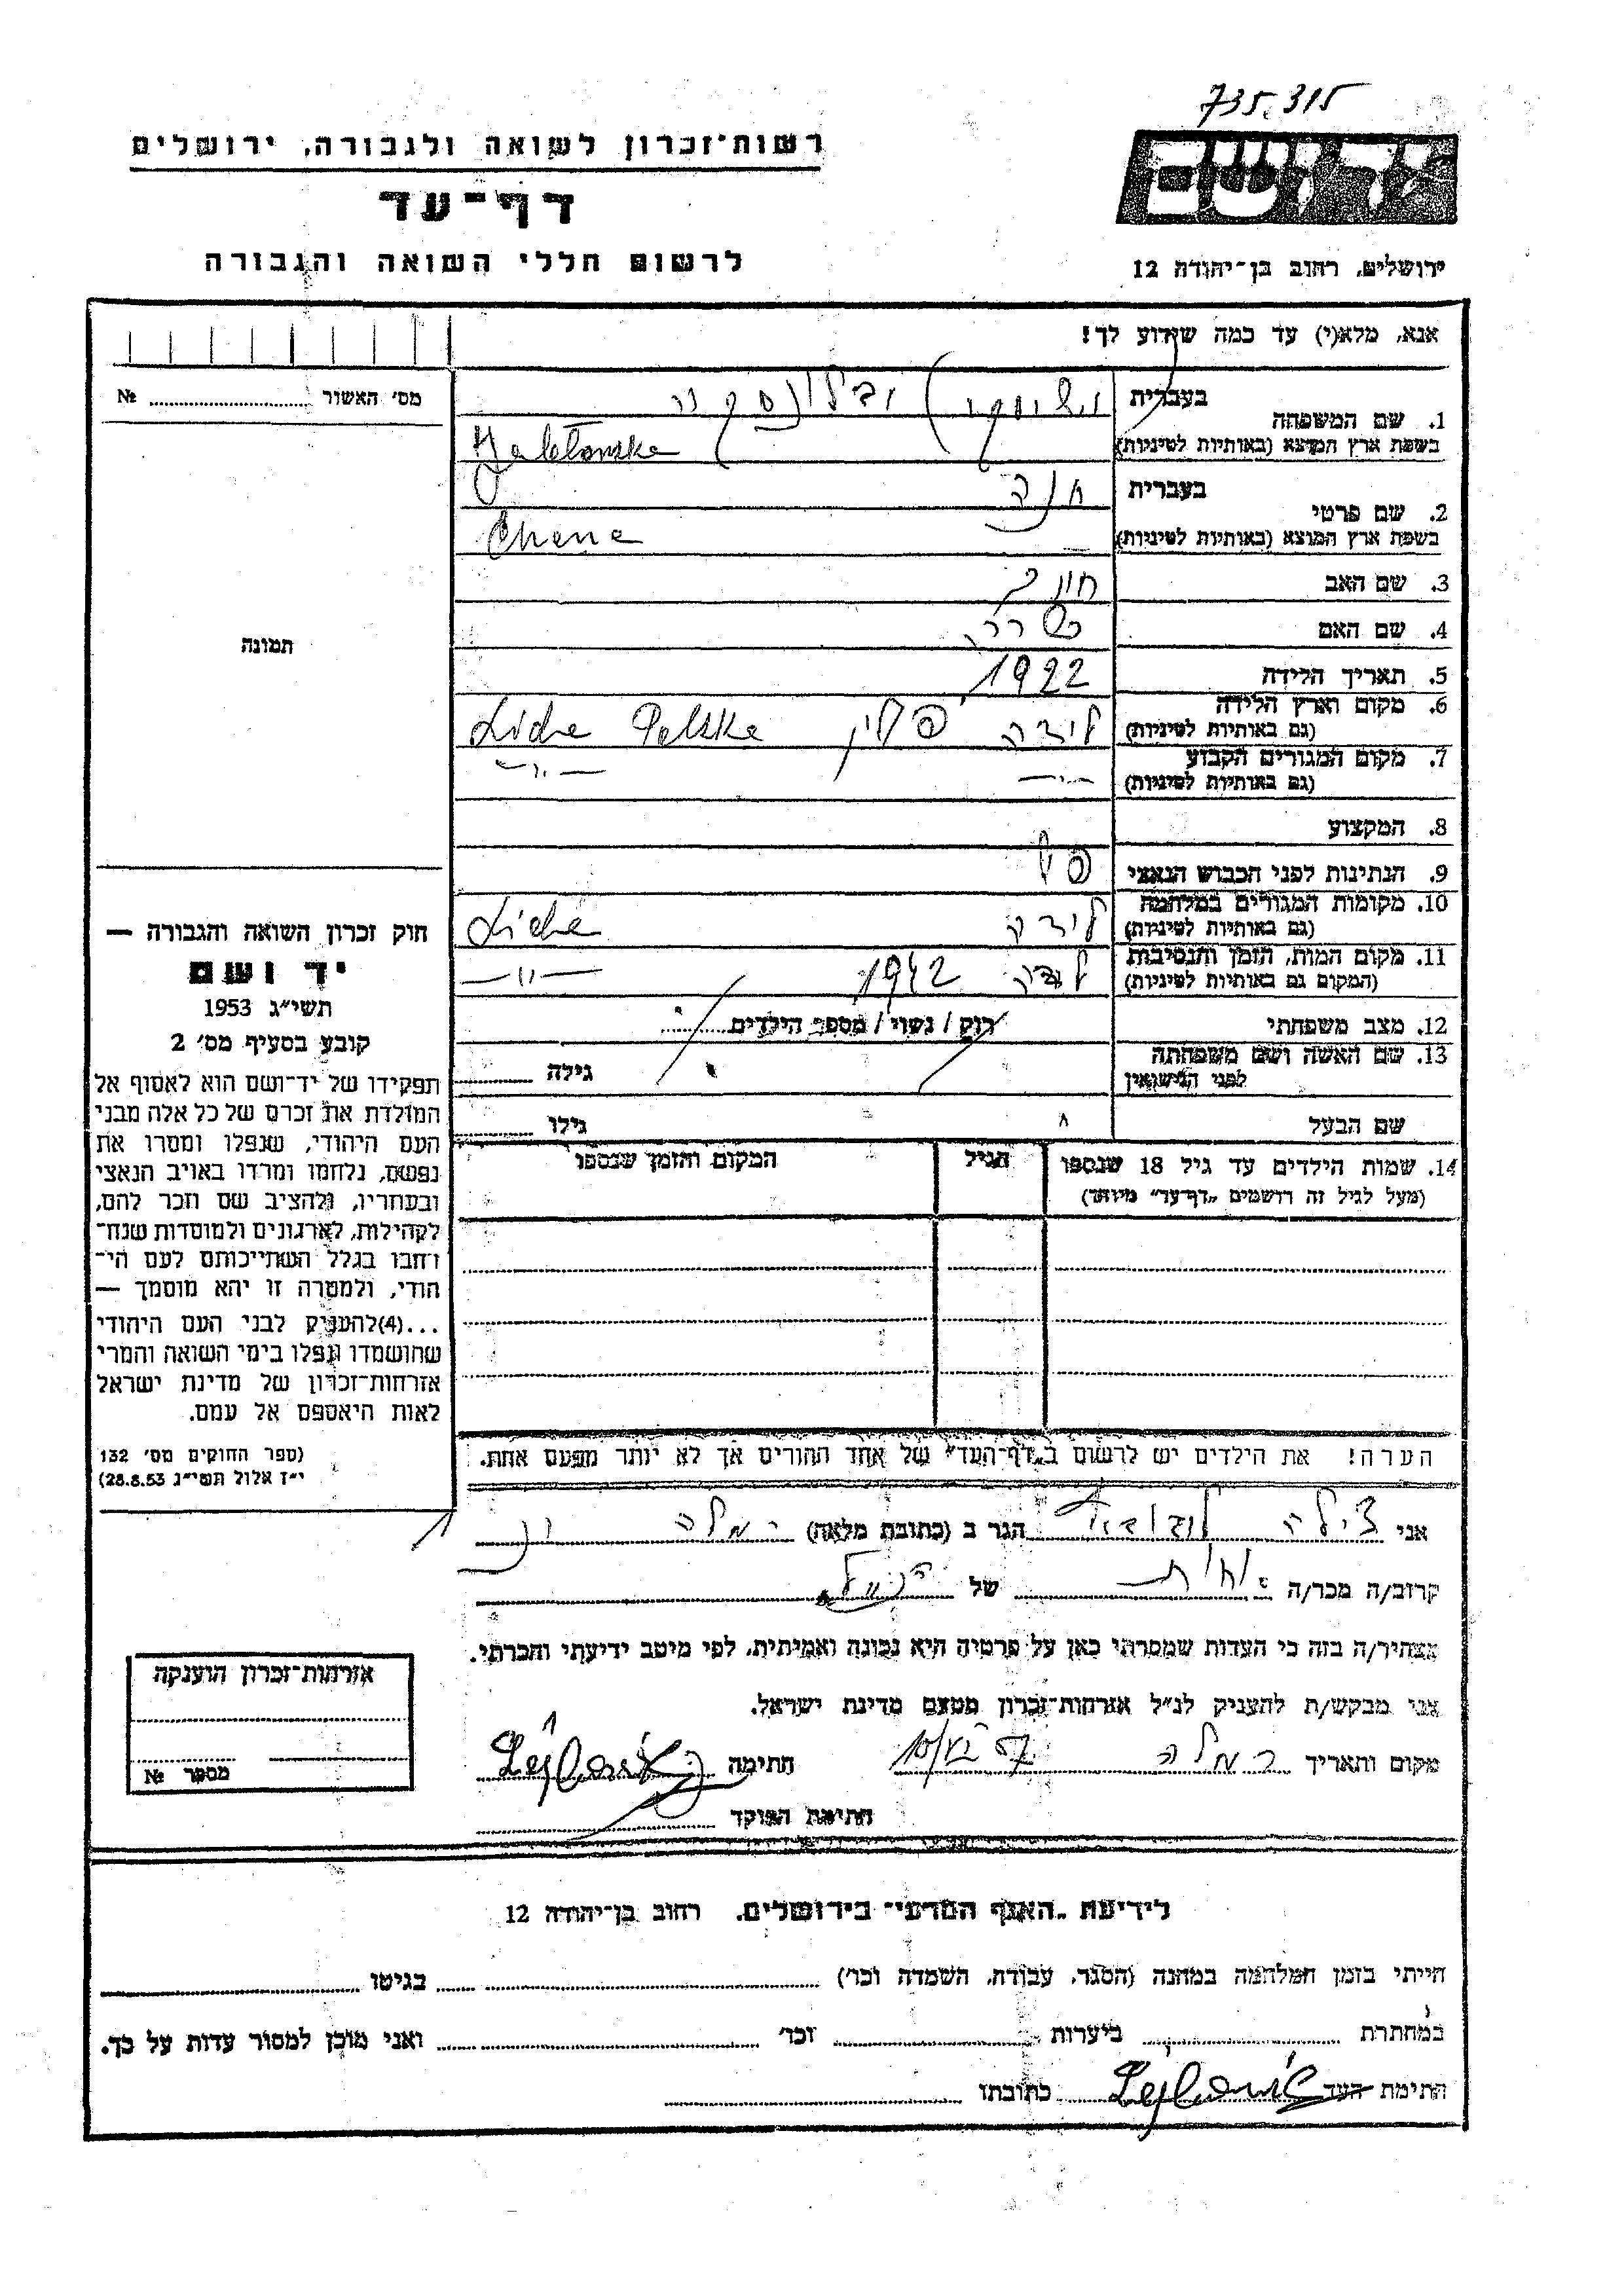 735.315
רשות־זכרון לשואה ולגבורה, ירושלים
דף־עד
לרשום חללי השואה והגבורה
יד ושם
ירושלים, רחוב בן־יהודה 12
אנא, מלא(י) עד כמה שידוע לך!
מס' האשור № ........
1. שם המשפחה
בעברית יבלונסקי
בשפת ארץ המוצא (באותיות לטיניות) Jabłonska
2. שם פרטי
בעברית חנה
בשפת ארץ המוצא (באותיות לטיניות) Chana
3. שם האב
4. שם האם שרה
5. תאריך הלידה 1922
6. מקום וארץ הלידה (גם באותיות לטיניות) לידה פולין Lida Polska
7. מקום המגורים הקבוע (גם באותיות לטיניות) —"— —"—
8. המקצוע
9. הנתינות לפני הכבוש הנאצי פול
10. מקומות המגורים במלחמה (גם באותיות לטיניות) לידה Lida
11. מקום המות, הזמן והנסיבות (המקום גם באותיות לטיניות) לידה 1942 —"—
12. מצב משפחתי רווק / נשוי / מספר הילדים........
13. שם האשה ושם משפחתה לפני הנישואין גילה ........
שם הבעל גילו ........
14. שמות הילדים עד גיל 18 שנספו (מעל לגיל זה רושמים „דף־עד" מיוחד)
הגיל
המקום והזמן שנספו
הערה! את הילדים יש לרשום ב„דף־העד" של אחד ההורים אך לא יותר מפעם אחת.
תמונה
חוק זכרון השואה והגבורה —
יד ושם
תשי"ג 1953
קובע בסעיף מס' 2
תפקידו של יד־ושם הוא לאסוף אל
המולדת את זכרם של כל אלה מבני
העם היהודי, שנפלו ומסרו את
נפשם, נלחמו ומרדו באויב הנאצי
ובעוזריו, ולהציב שם וזכר להם,
לקהילות, לארגונים ולמוסדות שנח־
רבו בגלל השתייכותם לעם הי־
הודי, ולמטרה זו יהא מוסמך —
...(4)להעניק לבני העם היהודי
שהושמדו ונפלו בימי השואה והמרי
אזרחות־זכרון של מדינת ישראל
לאות היאספם אל עמם.
(ספר החוקים מס' 132
י"ז אלול תשי"ג 28.8.53)
אני צילה הגר ב (כתובת מלאה) רמלה
קרוב/ה מכר/ה אחות של הנ"ל
מצהיר/ה בזה כי העדות שמסרתי כאן על פרטיה היא נכונה ואמיתית, לפי מיטב ידיעתי והכרתי.
אני מבקש/ת להעניק לנ"ל אזרחות־זכרון מטעם מדינת ישראל.
מקום ותאריך רמלה חתימה
חתימת הפוקד
אזרחות־זכרון הוענקה
מספר №
לידיעת „האגף המדעי" בירושלים, רחוב בן־יהודה 12
הייתי בזמן המלחמה במחנה (הסגר, עבודה, השמדה וכו') ........ בגיטו ........
במחתרת ........ ביערות ........ וכו' ........ ואני מוכן למסור עדות על כך.
חתימת העד ........ כתובתו ........